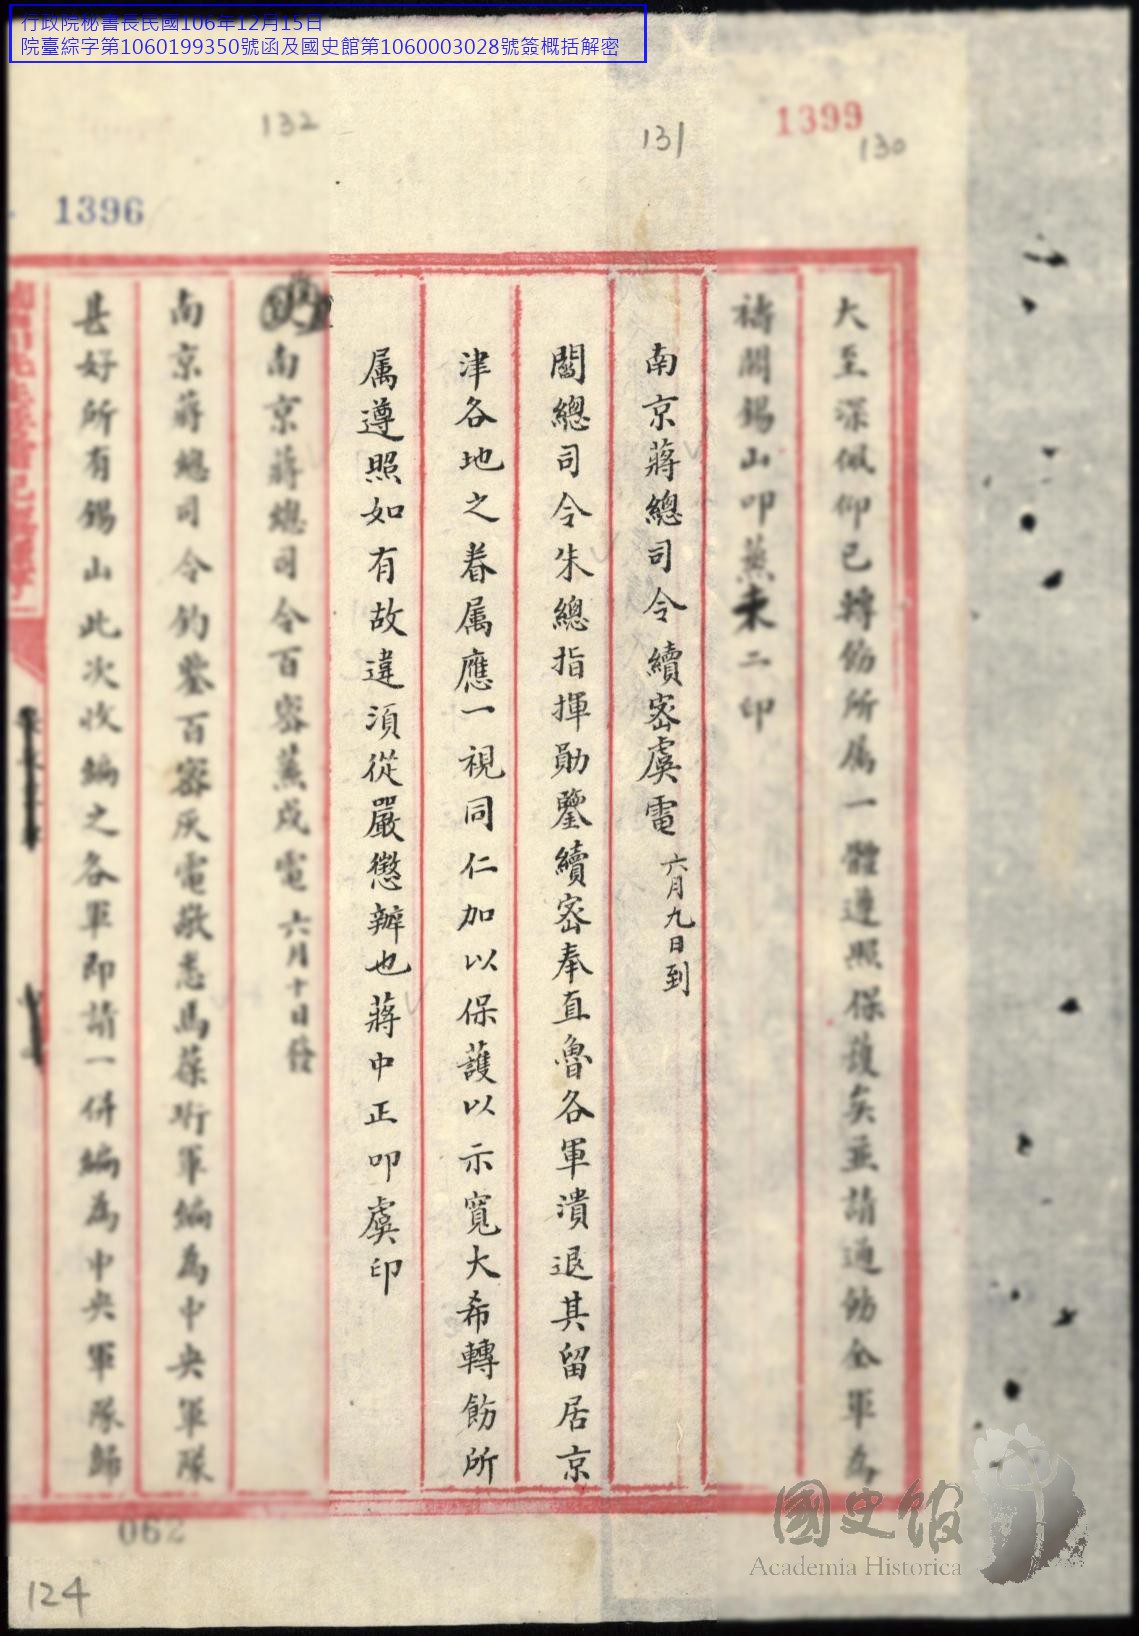 行政院秘書長民國106年12月15日
院臺綜字第1060199350號函及國史館第1060003028號簽概括解密
1399
130
131
132
1396
大至深佩仰已轉飭所屬一體遵照保護矣並請通飭全軍為
禱閻錫山叩蒸未二印
南京蔣總司令續密虞電 六月九日到
閻總司令朱總指揮勛鑒續密奉直魯各軍潰退其留居京
津各地之眷属應一視同仁加以保護以示寬大希轉飭所
属遵照如有故違須從嚴懲辦也蔣中正叩虞印
南京蔣總司令百密蒸戌電 六月十日發
南京蔣總司令鈞鑒百密灰電敬悉馬葆珩軍編為中央軍隊
甚好所有錫山此次收編之各軍即請一併編為中央軍隊歸
062
124
國史館
Academia Historica